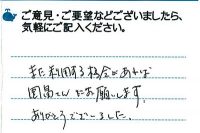 ご意見・ご要望などございましたら、
気軽にご記入ください。
また利用する機会があれば
さんにお願いします。
ありがとうございました。